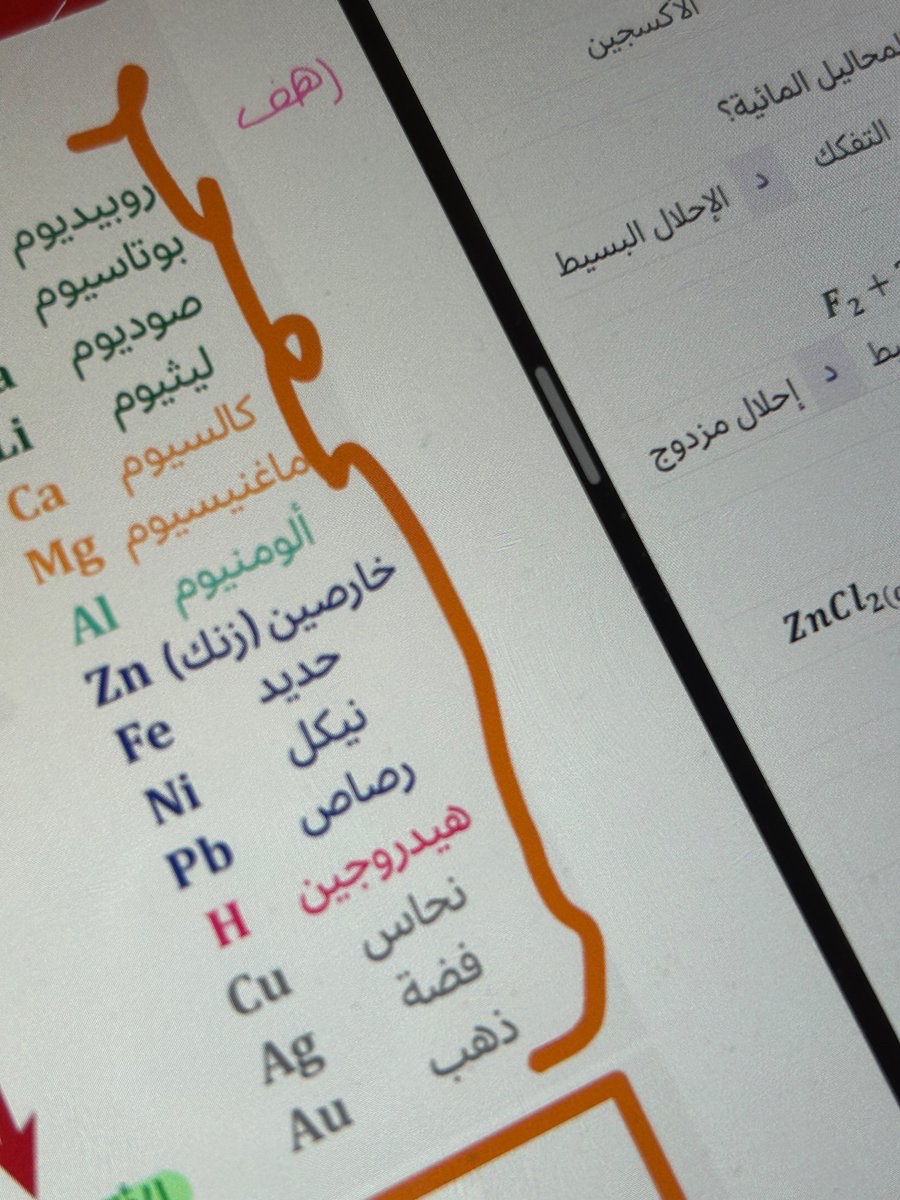 روبيديوم
بوتاسيوم
صوديوم
ليثيوم Li
كالسيوم Ca
ماغنيسيوم Mg
ألومنيوم Al
خارصين (زنك) Zn
حديد Fe
نيكل Ni
رصاص Pb
هيدروجين H
نحاس Cu
فضة Ag
ذهب Au
الأكسجين
المحاليل المائية؟
التفكك د الإحلال البسيط
F₂ +
د إحلال مزدوج
ZnCl₂(